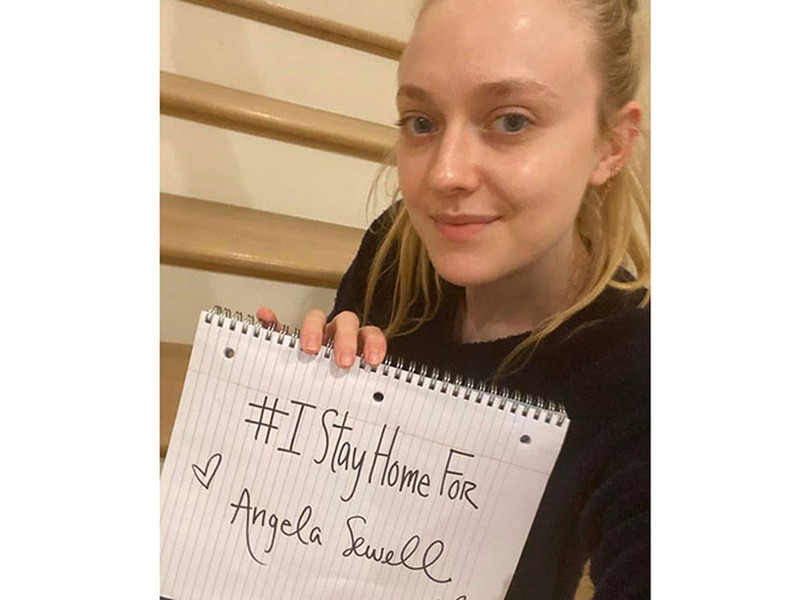 #I Stay Home For
Angela Sewell